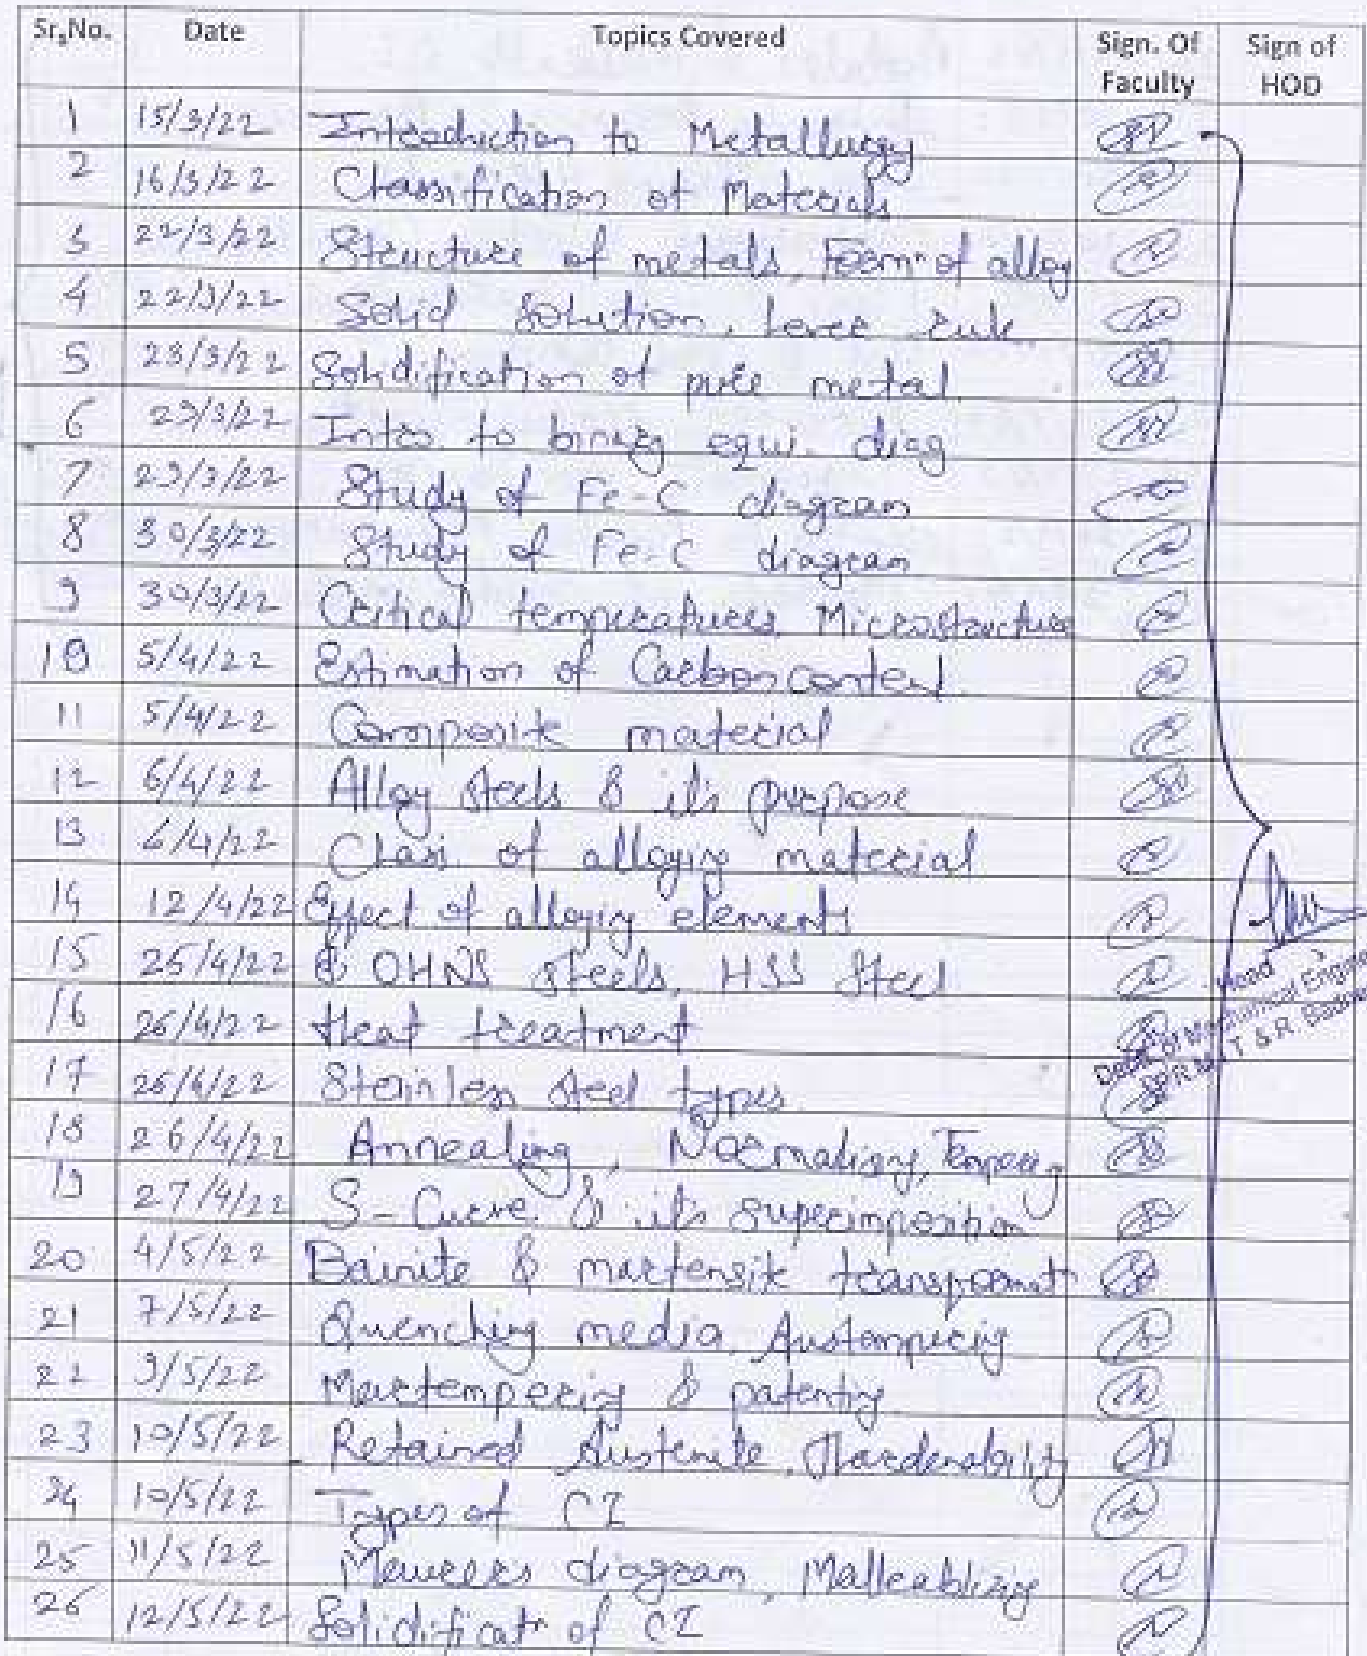 Sr.No. Date Topics Covered Sign. Of Faculty Sign of HOD
1 15/3/22 Introduction to Metallurgy
2 16/3/22 Classification of Materials
3 22/3/22 Structure of metals, Form^n of alloy
4 22/3/22 Solid Solution, Lever rule.
5 23/3/22 Solidification of pure metal.
6 29/3/22 Intro. to binary equi. diag
7 29/3/22 Study of Fe-C diagram
8 30/3/22 Study of Fe-C diagram
9 30/3/22 Critical temperatures, Microstructure
10 5/4/22 Estimation of Carbon content.
11 5/4/22 Composite material
12 6/4/22 Alloy steels & it's purpose
13 6/4/22 Classi of alloying material
14 12/4/22 Effect of alloying elements
15 25/4/22 OHNS steels, HSS Steel
16 26/4/22 Heat treatment
17 26/4/22 Stainless steel types.
18 26/4/22 Annealing, Normalising, Tempering
19 27/4/22 S-Curve & it's superimposition
20 4/5/22 Bainite & martensite transformat
21 7/5/22 Quenching media, Austempering
22 9/5/22 Martempering & patenting.
23 10/5/22 Retained Austenite, Hardenability
24 10/5/22 Types of CI
25 11/5/22 Maurer's diagram, Malleablizing
26 12/5/22 Solidificat^n of CI
Head
Dept. of Mechanical Engine
SPRM I T & R. Badne